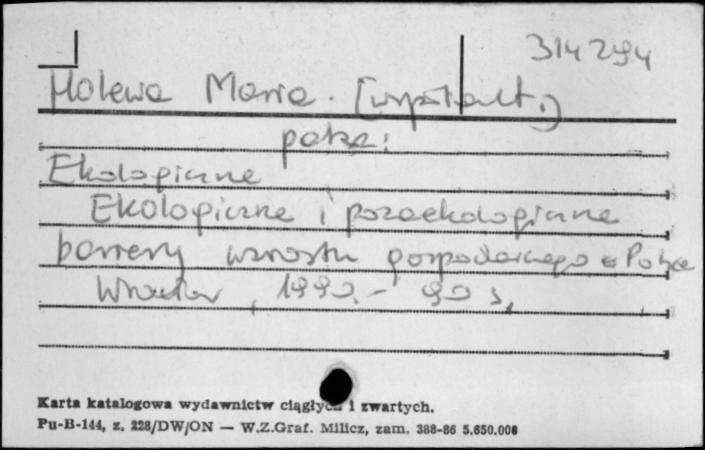 314294
Holewa Maria. (współaut.)
patrz:
Ekologiczne
Ekologiczne i pozaekologiczne
bariery wzrostu gospodarczego w Polsce
Wrocław, 1990. - 90 s.
Karta katalogowa wydawnictw ciągłych i zwartych.
Pu-B-144, z. 228/DW/ON — W.Z.Graf. Milicz, zam. 388-86 5.650.000